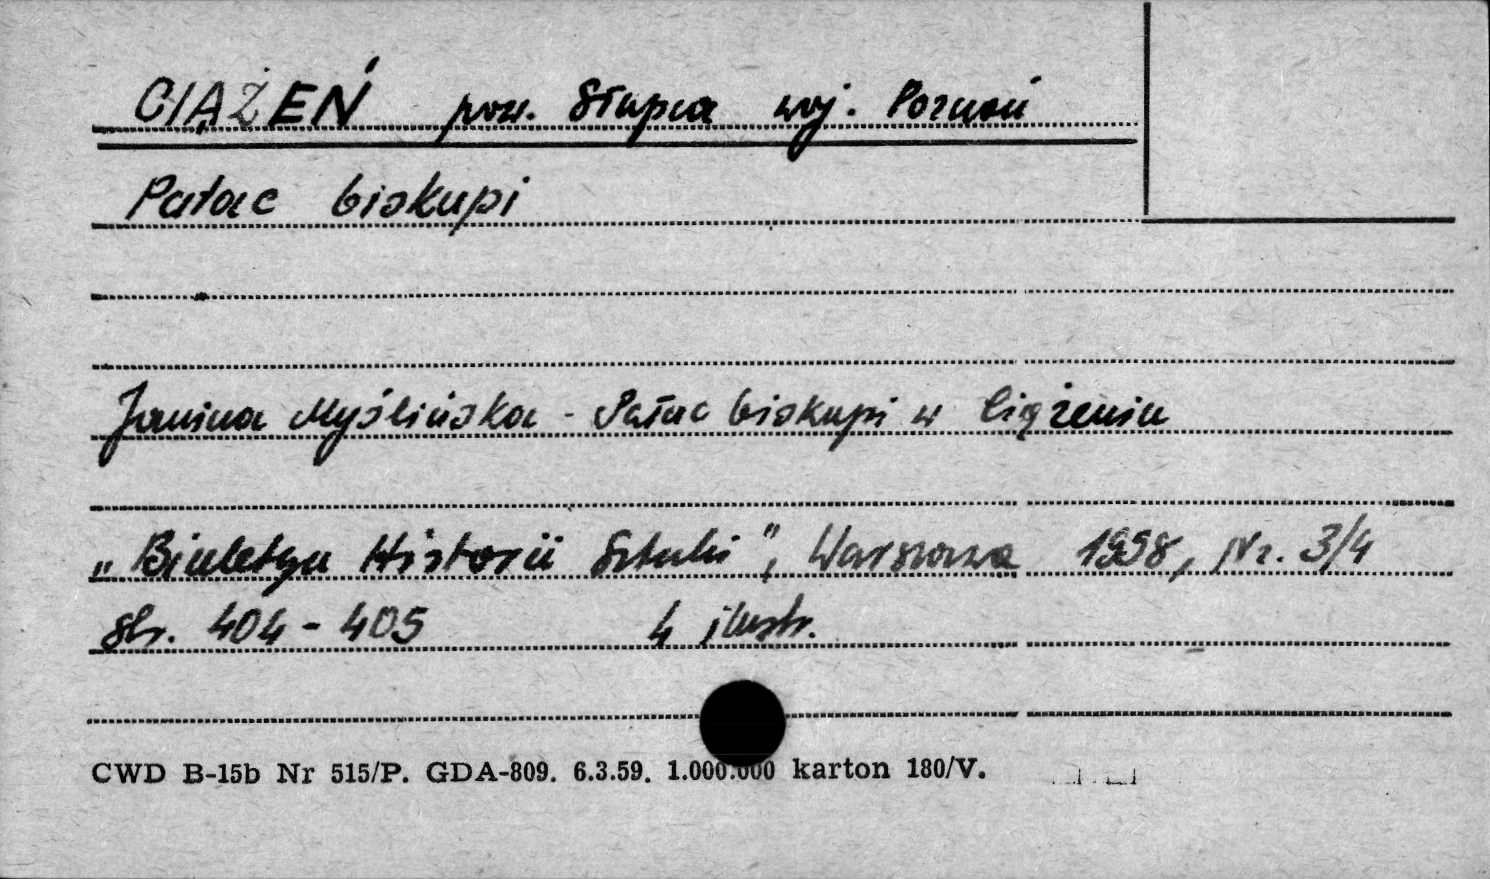 CIĄŻEŃ pow. Słupca woj. Poznań
Pałac biskupi
Janina Myślińska - Pałac biskupi w Ciążeniu
„Biuletyn Historii Sztuki", Warszawa 1958, Nr. 3/4
str. 404-405 4 ilustr.
CWD B-15b Nr 515/P. GDA-809. 6.3.59. 1.000.000 karton 180/V.